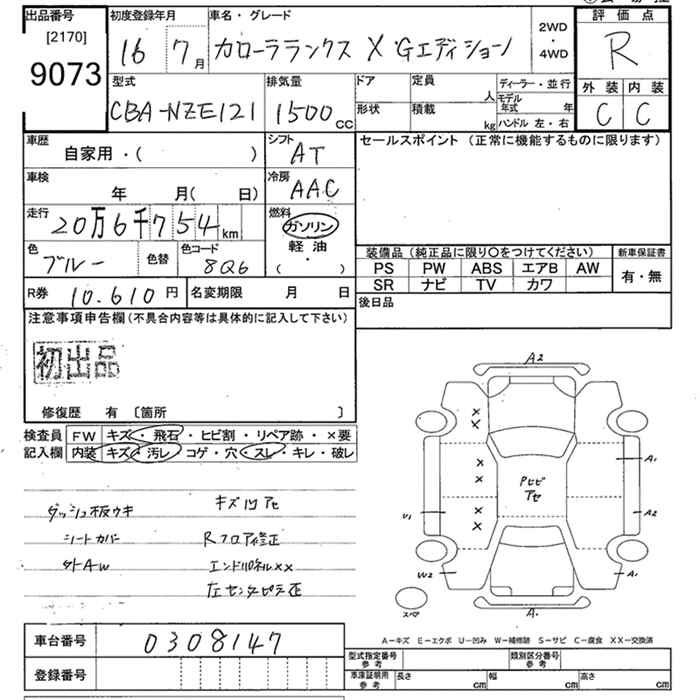 出品番号
[2170]
9073
初度登録年月
16年7月
車名・グレード
カローラランクス X Gエディション
2WD
・
4WD
評価点
R
外装 内装
C C
型式
CBA-NZE121
排気量
1500cc
ドア
定員
人
形状
積載
kg
ディーラー・並行
モデル年式 年
ハンドル 左・右
車歴
自家用・( )
シフト
AT
車検
年 月( 日)
冷房
AAC
走行
20万6千754km
燃料
ガソリン
軽油
( ・ )
色
ブルー
色替
色コード
8Q6
R券 10,610円
名変期限 月 日
セールスポイント (正常に機能するものに限ります)
装備品 (純正品に限り○をつけてください)
PS PW ABS エアB AW
SR ナビ TV カワ
新車保証書
有・無
後日品
注意事項申告欄(不具合内容等は具体的に記入して下さい)
初出品
修復歴 有 〔箇所 〕
検査員記入欄
FW キズ・飛石・ヒビ割・リペア跡・×要
内装 キズ・汚レ・コゲ・穴・スレ・キレ・破レ
ダッシュ板ウキ キズ凹アセ
シートカバー Rフロア修正
外AW エンドパネル××
左センタピラ歪
A2
×
×
×
×
×
×
PヒビアセA1
A2
U1
W2
A1
A.
スペア
A-キズ E-エクボ U-凹み W-補修跡 S-サビ C-腐食 XX-交換済
車台番号 0308147
登録番号
型式指定番号
参考
類別区分番号
参考
車庫証明用
参考
長さ cm 幅 cm 高さ cm